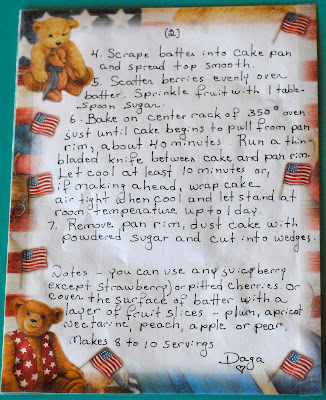 (2)
4. Scrape batter into cake pan
and spread top smooth.
5. Scatter berries evenly over
batter. Sprinkle fruit with 1 table-
spoon sugar.
6. Bake on center rack of 350° oven
just until cake begins to pull from pan
rim, about 40 minutes. Run a thin-
bladed knife between cake and pan rim.
Let cool at least 10 minutes or,
if making ahead, wrap cake
air tight when cool and let stand at
room temperature up to 1 day.
7. Remove pan rim, dust cake with
powdered sugar and cut into wedges.
Notes - you can use any juicy berry
except strawberry) or pitted cherries. Or
cover the surface of batter with a
layer of fruit slices - plum, apricot
nectarine, peach, apple or pear.
Makes 8 to 10 servings
Daga